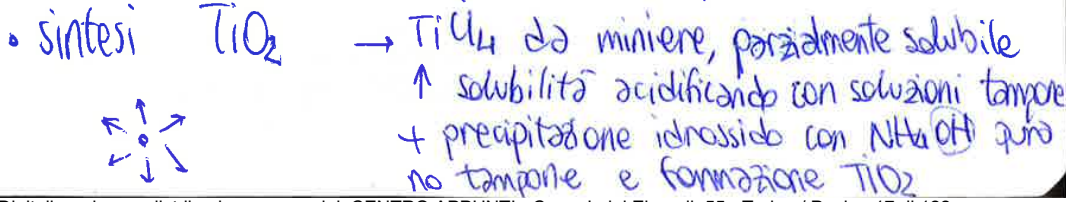 • sintesi TiO2 → TiCl4 da miniere, parzialmente solubile
↑ solubilità acidificando con soluzioni tampone
+ precipitazione idrossido con NH4OH puro
no tampone e formazione TiO2